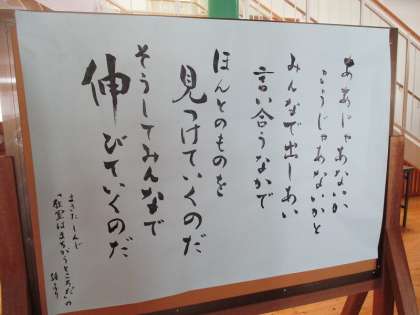 ああじゃあないか
こうじゃあないかと
みんなで出しあい
言い合うなかで
ほんとのものを
見つけていくのだ
そうしてみんなで
伸びていくのだ
まきた しんじ
「教室はまちがうところだ」の
詩より